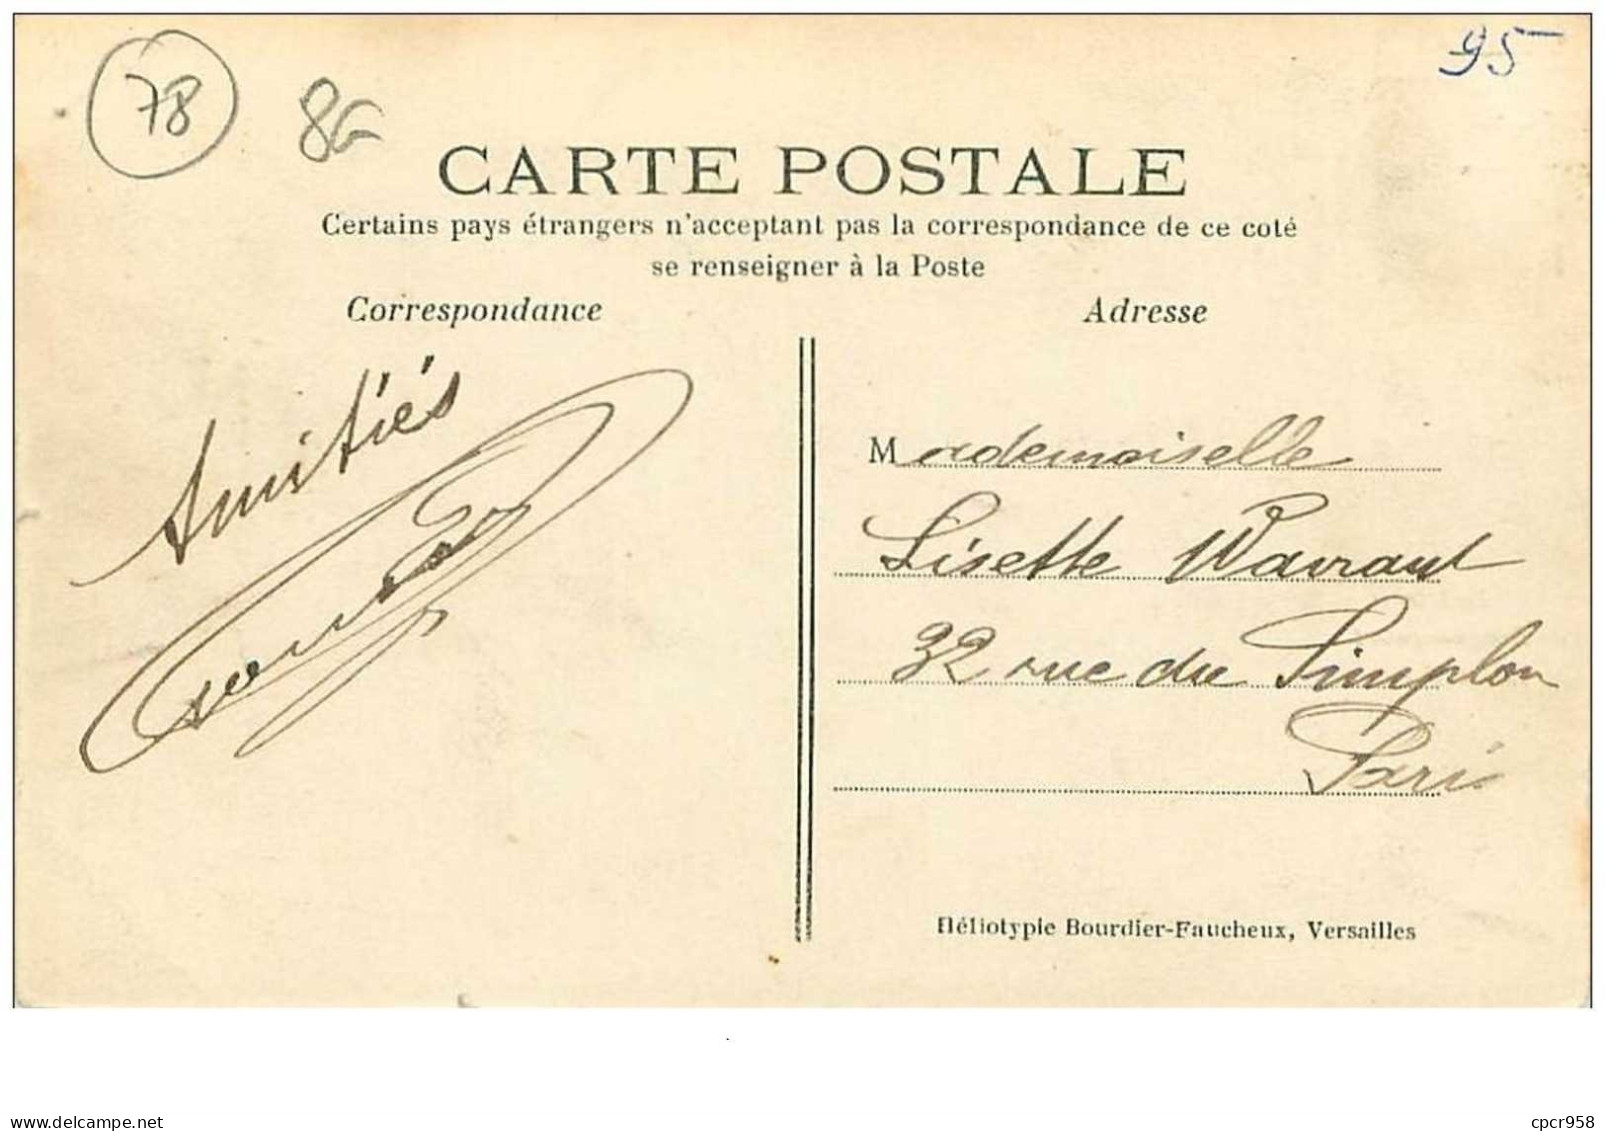 78
8G
95
CARTE POSTALE
Certains pays étrangers n'acceptant pas la correspondance de ce coté
se renseigner à la Poste
Correspondance
Adresse
Amitiés
Mademoiselle
Lisette Wavrant
32 rue du Simplon
Paris
Héliotypie Bourdier-Faucheux, Versailles
www.delcampe.net
cpcr958